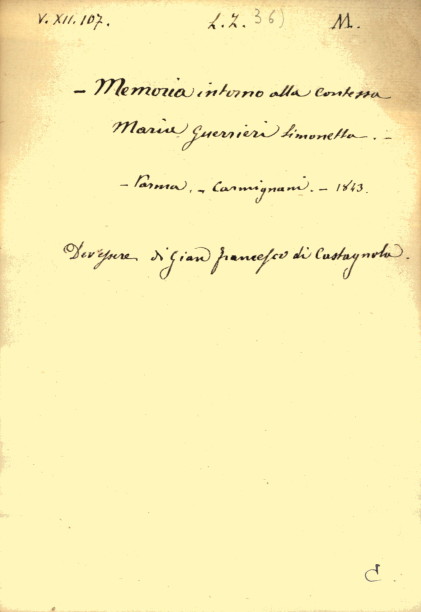 V. XII. 107. L. Z. 36) M.
– Memoria intorno alla Contessa
Maria Guerrieri Simonetta. –
– Parma. – Carmignani. – 1843.
Dev'essere di Gian Francesco di Castagnola.
C.